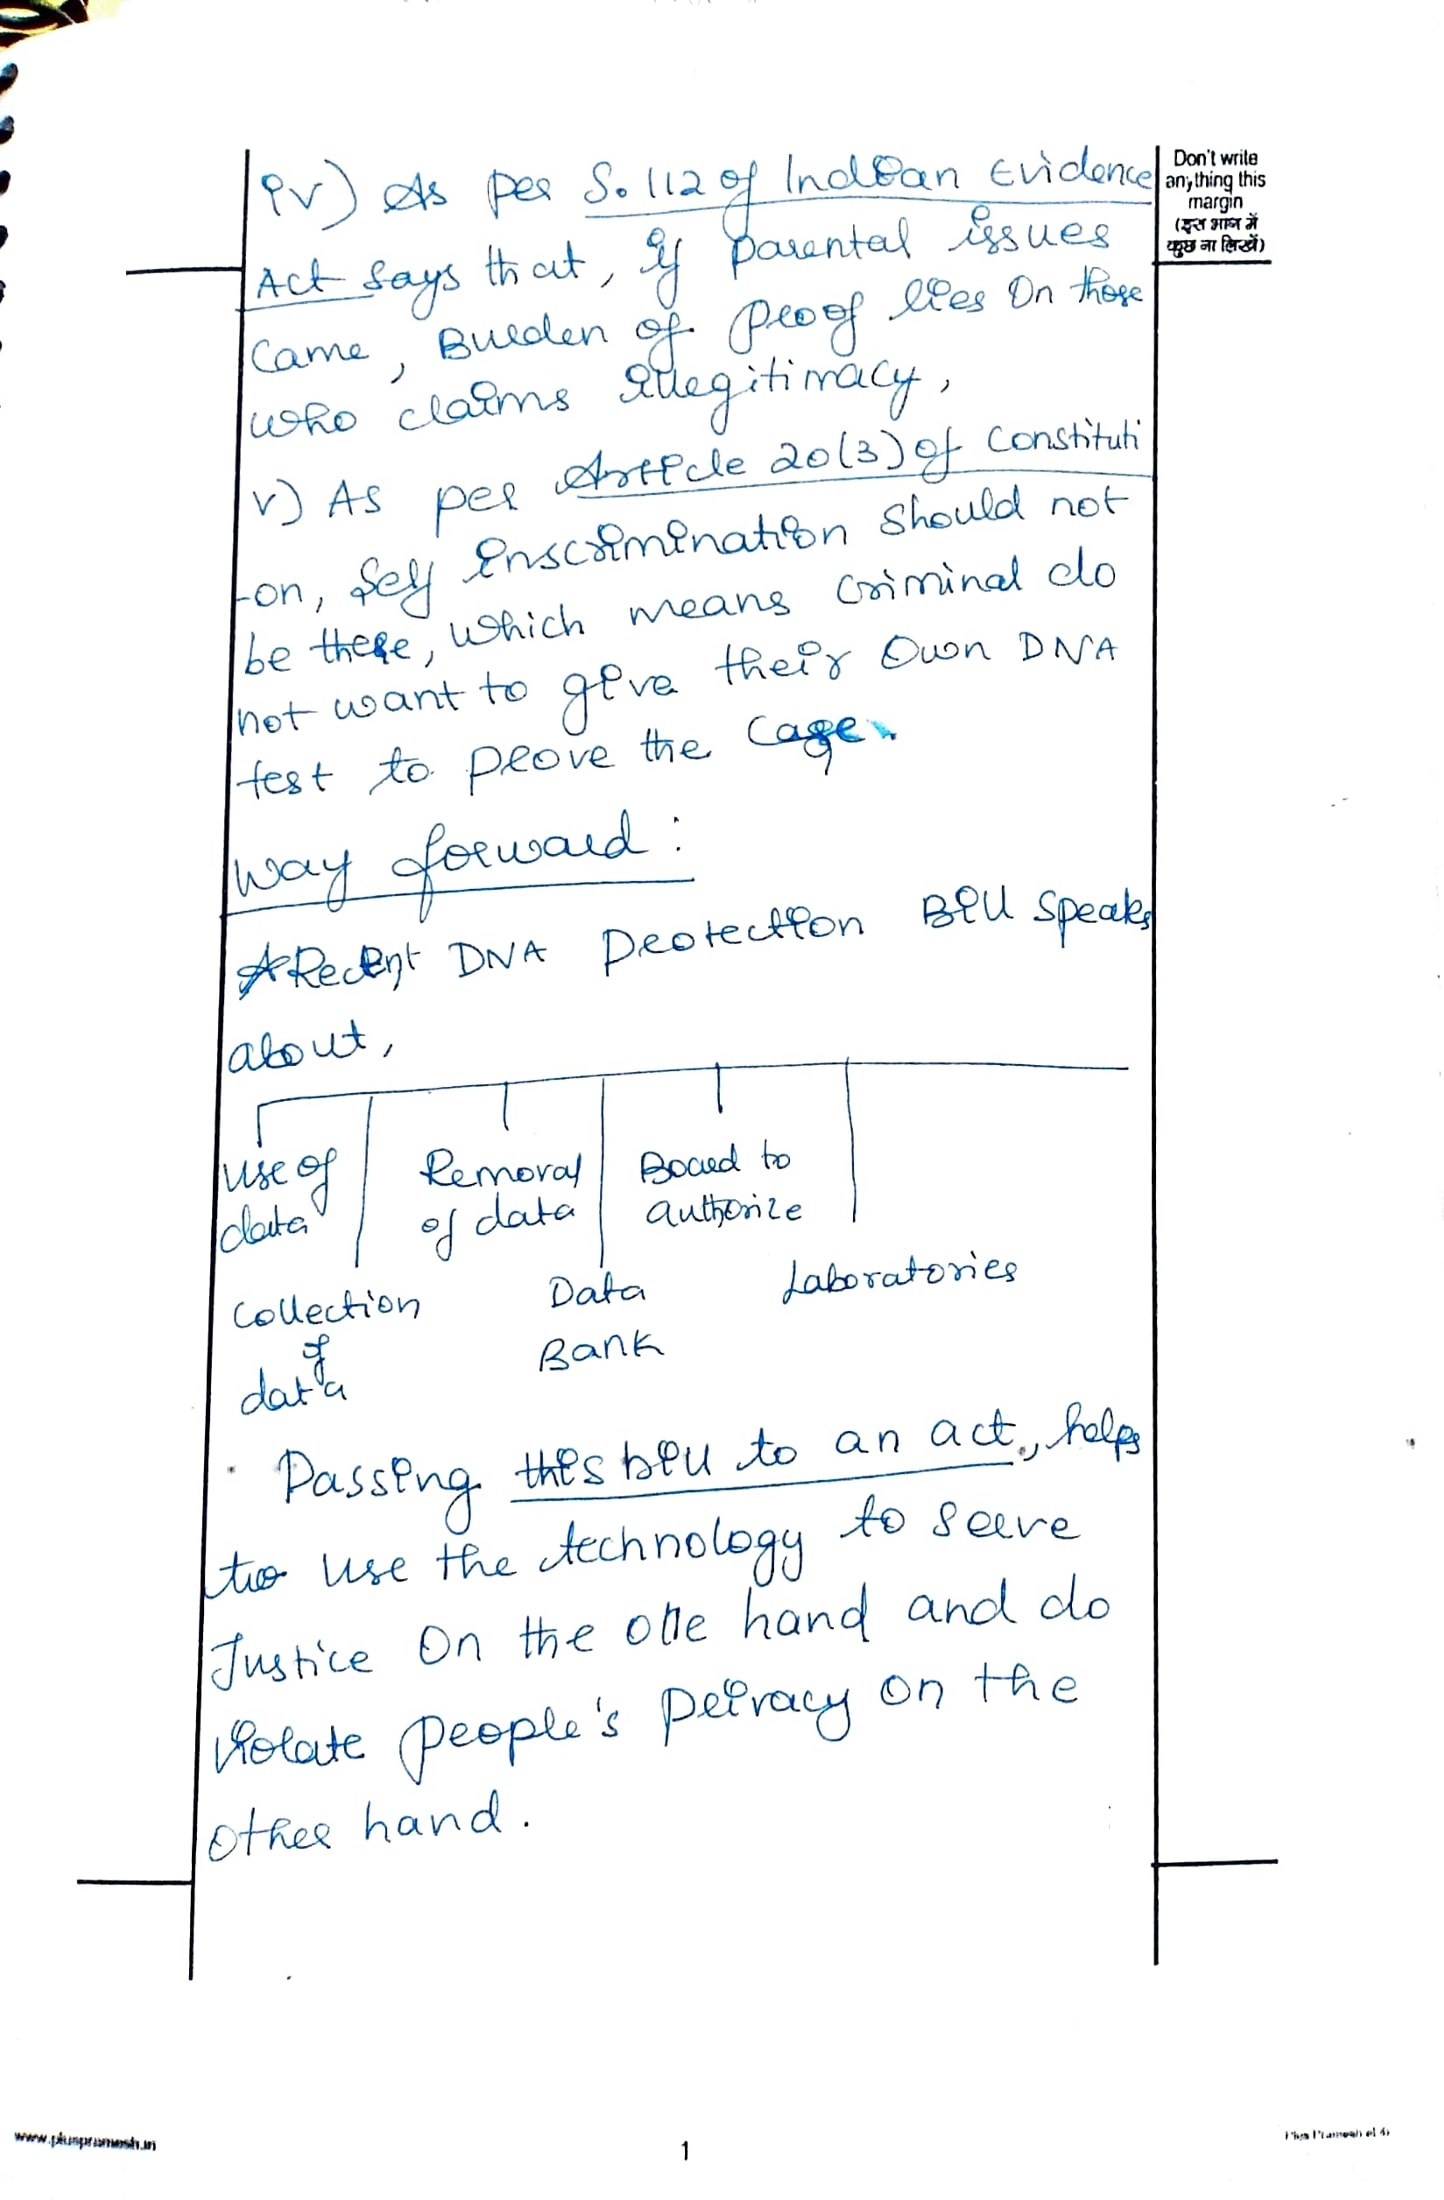 Don't write
anything this
margin
(इस भाग में
कुछ ना लिखें)
iv) As per S. 112 of Indian Evidence
Act says that, if parental issues
came, Burden of proof lies On those
who claims illegitimacy,
v) As per Article 20(3) of Constituti
-on, Self inscrimination should not
be there, which means criminal do
not want to give their Own DNA
test to prove the case.
Way forward :
Recent DNA protection Bill speaks
about,
use of data
Removal of data
Board to authorize
Collection of data
Data Bank
Laboratories
Passing this bill to an act, helps
to use the technology to serve
Justice On the one hand and do
violate people's privacy on the
other hand.
www.pluspramesh.in
1